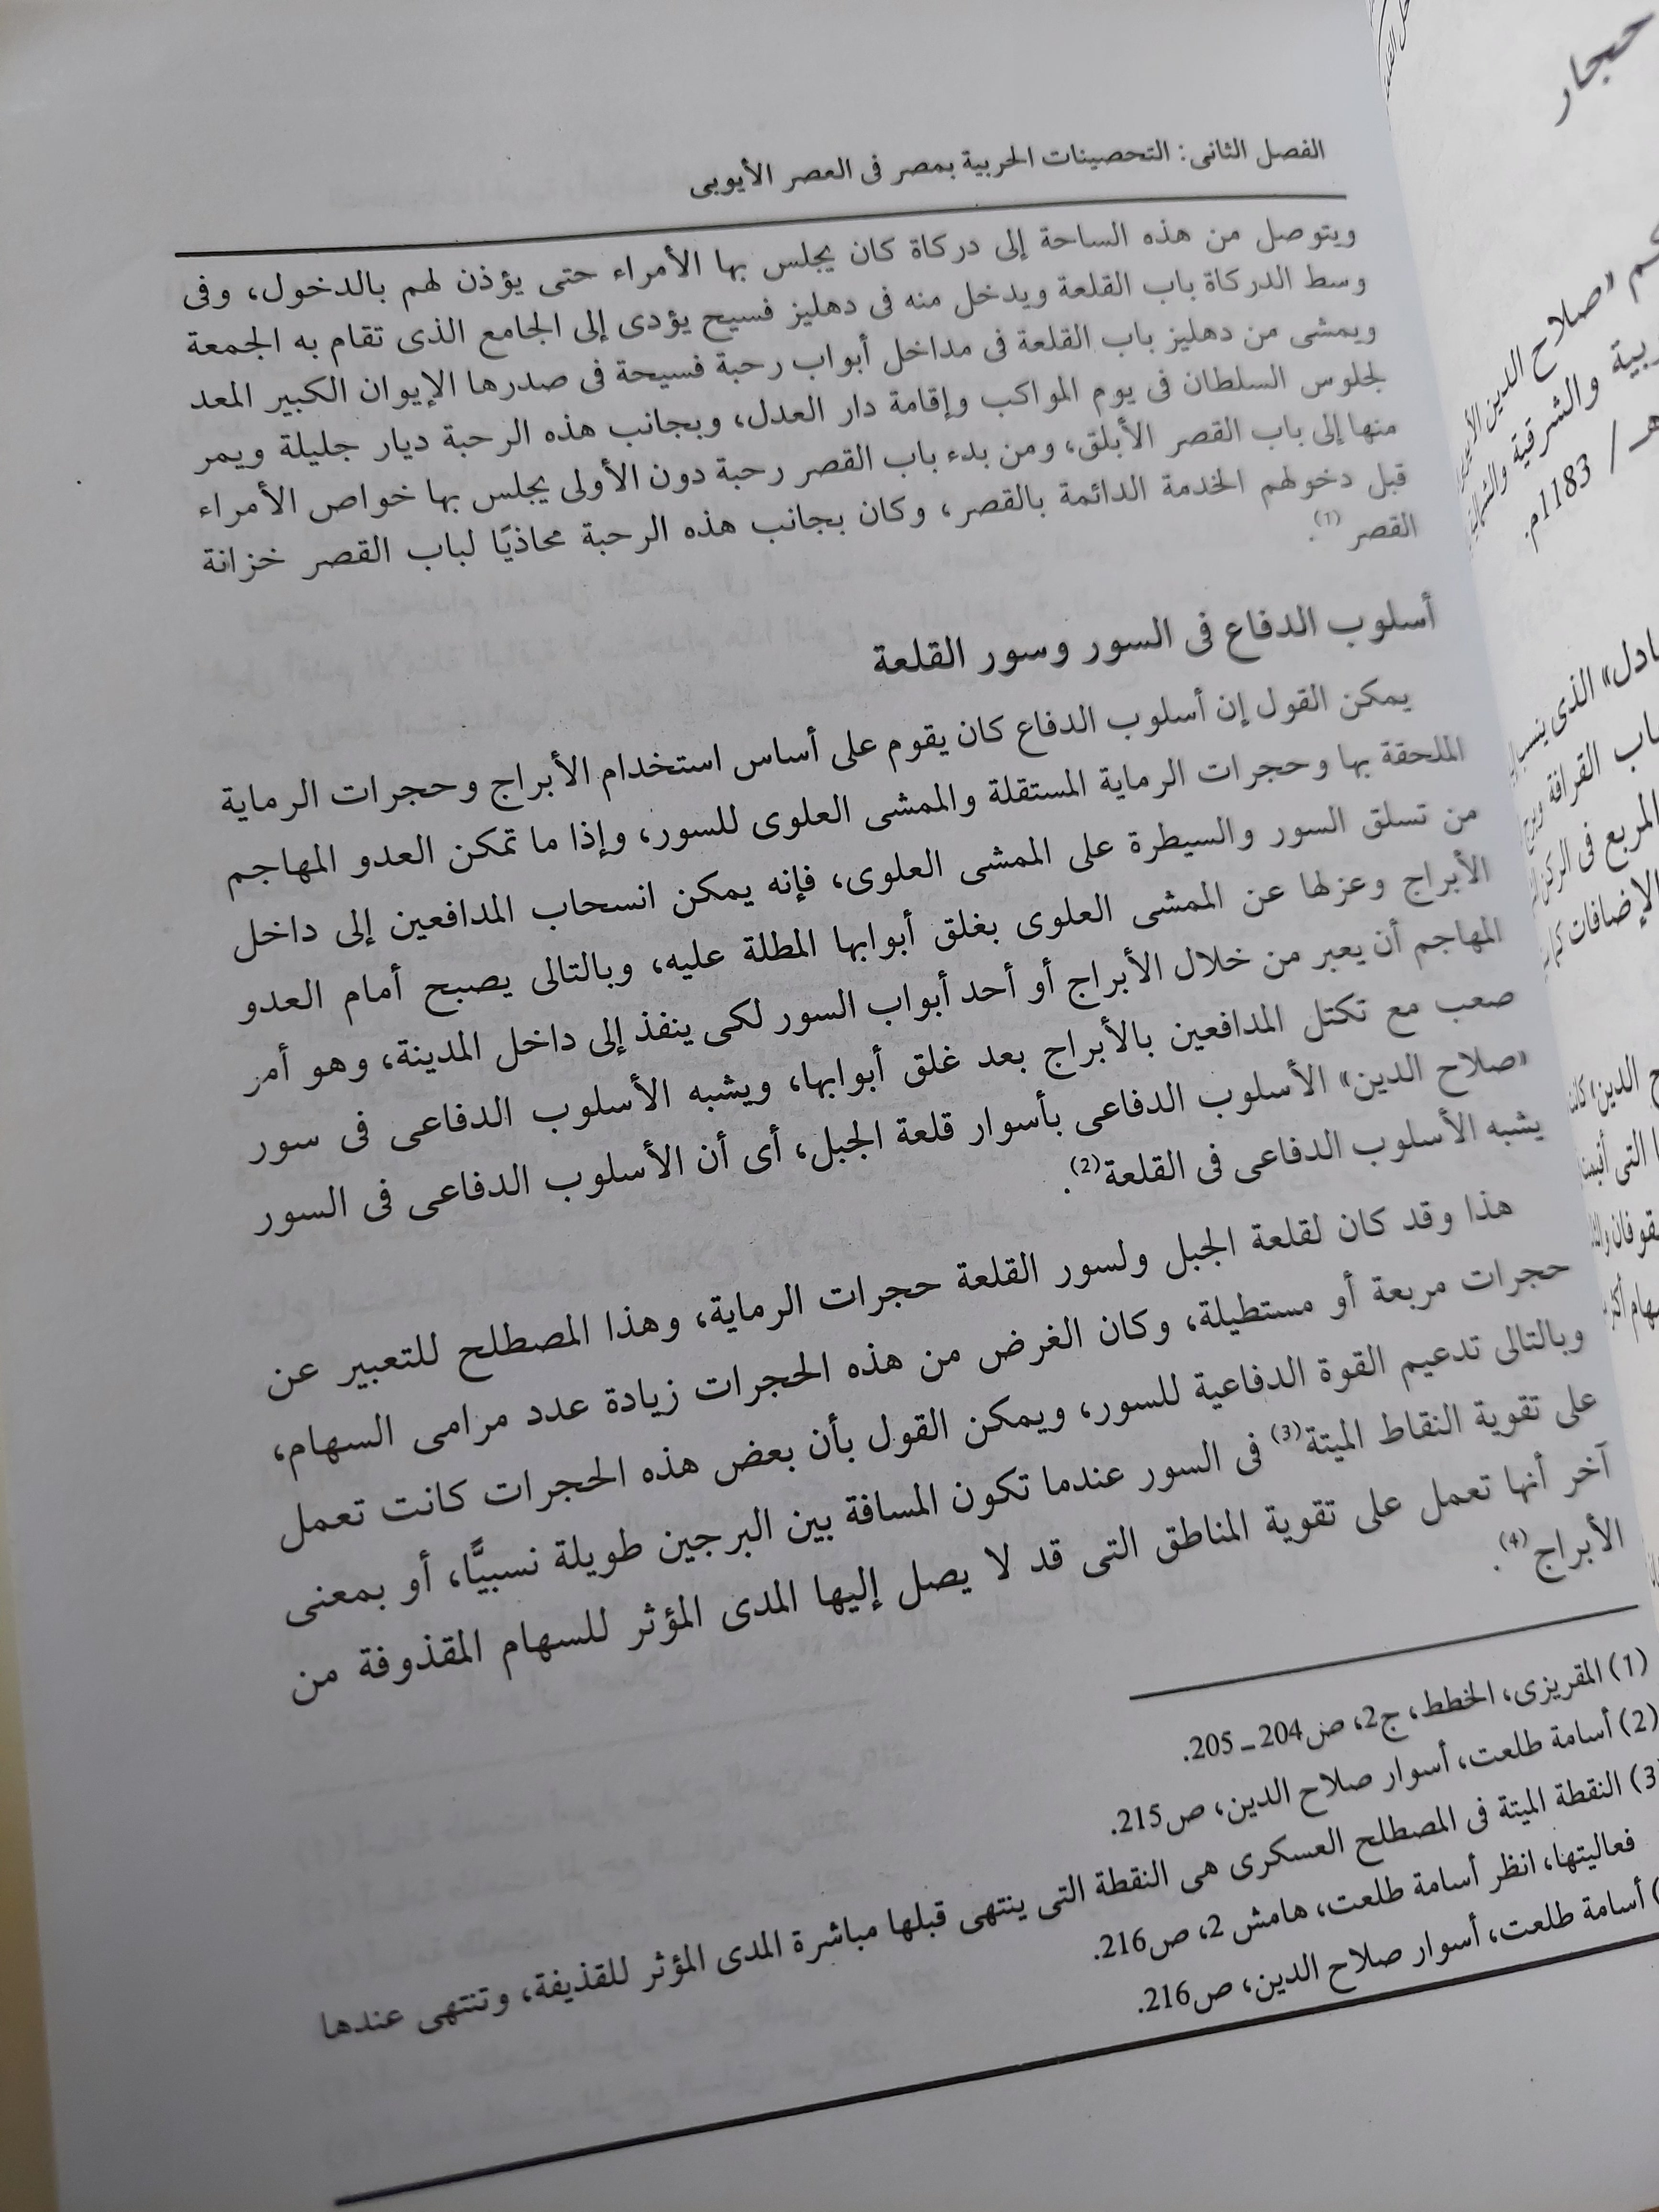 الفصل الثانى: التحصينات الحربية بمصر فى العصر الأيوبى
ويتوصل من هذه الساحة إلى دركاة كان يجلس بها الأمراء حتى يؤذن لهم بالدخول، وفى
وسط الدركاة باب القلعة ويدخل منه فى دهليز فسيح يؤدى إلى الجامع الذى تقام به الجمعة
ويمشى من دهليز باب القلعة فى مداخل أبواب رحبة فسيحة فى صدرها الإيوان الكبير المعد
لجلوس السلطان فى يوم المواكب وإقامة دار العدل، وبجانب هذه الرحبة ديار جليلة ويمر
منها إلى باب القصر الأبلق، ومن بدء باب القصر رحبة دون الأولى يجلس بها خواص الأمراء
قبل دخولهم الخدمة الدائمة بالقصر، وكان بجانب هذه الرحبة محاذيًا لباب القصر خزانة
القصر (1).
أسلوب الدفاع فى السور وسور القلعة
يمكن القول إن أسلوب الدفاع كان يقوم على أساس استخدام الأبراج وحجرات الرماية
الملحقة بها وحجرات الرماية المستقلة والممشى العلوى للسور، وإذا ما تمكن العدو المهاجم
من تسلق السور والسيطرة على الممشى العلوى، فإنه يمكن انسحاب المدافعين إلى داخل
الأبراج وعزلها عن الممشى العلوى بغلق أبوابها المطلة عليه، وبالتالى يصبح أمام العدو
المهاجم أن يعبر من خلال الأبراج أو أحد أبواب السور لكى ينفذ إلى داخل المدينة، وهو أمر
صعب مع تكتل المدافعين بالأبراج بعد غلق أبوابها، ويشبه الأسلوب الدفاعى فى سور
«صلاح الدين» الأسلوب الدفاعى بأسوار قلعة الجبل، أى أن الأسلوب الدفاعى فى السور
يشبه الأسلوب الدفاعى فى القلعة(2).
هذا وقد كان لقلعة الجبل ولسور القلعة حجرات الرماية، وهذا المصطلح للتعبير عن
حجرات مربعة أو مستطيلة، وكان الغرض من هذه الحجرات زيادة عدد مرامى السهام،
وبالتالى تدعيم القوة الدفاعية للسور، ويمكن القول بأن بعض هذه الحجرات كانت تعمل
على تقوية النقاط الميتة(3) فى السور عندما تكون المسافة بين البرجين طويلة نسبيًّا، أو بمعنى
آخر أنها تعمل على تقوية المناطق التى قد لا يصل إليها المدى المؤثر للسهام المقذوفة من
الأبراج(4).
(1) المقريزى، الخطط، ج2، ص204ـ205.
(2) أسامة طلعت، أسوار صلاح الدين، ص215.
3) النقطة الميتة فى المصطلح العسكرى هى النقطة التى ينتهى قبلها مباشرة المدى المؤثر للقذيفة، وتنتهى عندها
فعاليتها، انظر أسامة طلعت، هامش 2، ص216.
) أسامة طلعت، أسوار صلاح الدين، ص216.
حجار
«صلاح الدين
والشرقية
/ 1183م.
الذى
باب القرافة
المربع فى الركن
الإضافات
الدين» كانت
التى